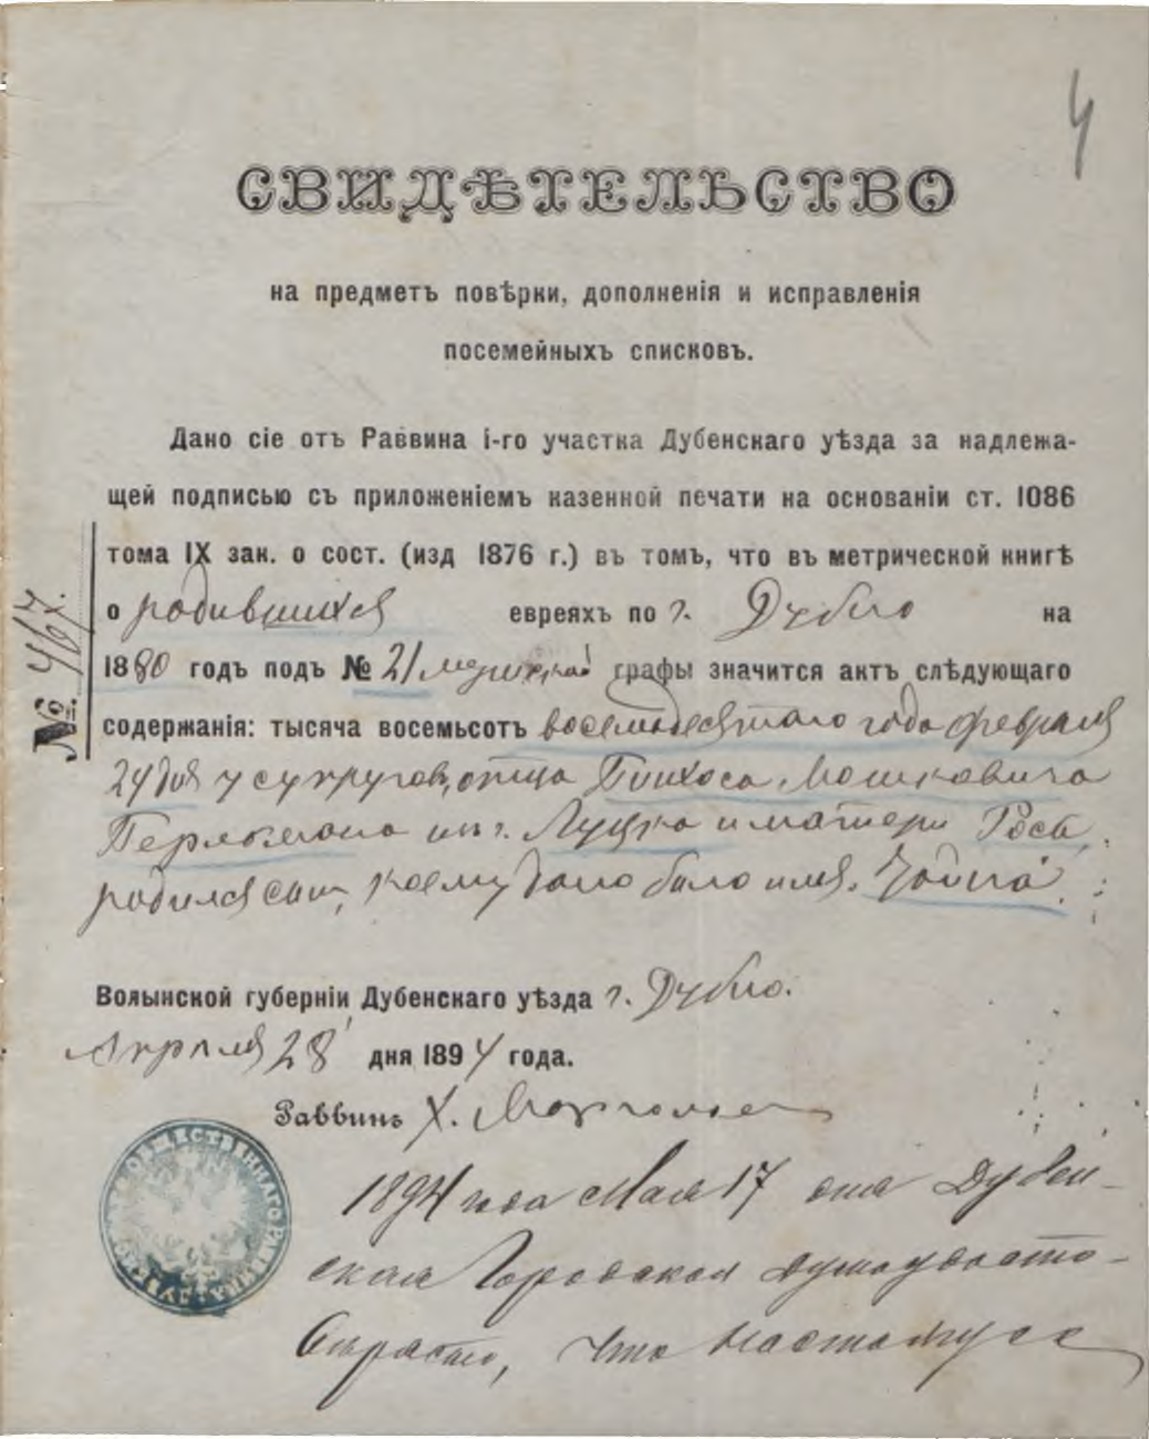 4
СВИДѢТЕЛЬСТВО
на предметъ повѣрки, дополненія и исправленія
посемейныхъ списковъ.
Дано сіе отъ Раввина І-го участка Дубенскаго уѣзда за надлежа-
щей подписью съ приложеніемъ казенной печати на основаніи ст. 1086
тома IX зак. о сост. (изд 1876 г.) въ томъ, что въ метрической книгѣ
о родившихся евреяхъ по г. Дубно на
1880 годъ подъ № 21 мужской графы значится актъ слѣдующаго
содержанія: тысяча восемьсотъ восемьдесятаго года февраля
24 дня у супруговъ, отца Пинхоса Мошковича
Перлмана изъ г. Луцка и матери Рось,
родился сынъ, коему дано было имя.
№. 467.
Волынской губерніи Дубенскаго уѣзда г. Дубно.
Апрѣля 28 дня 1894 года.
Раввинъ Х.
1894 года Мая 17 дня Дубен-
ская Городская Дума удосто-
вѣряетъ, что настоящее